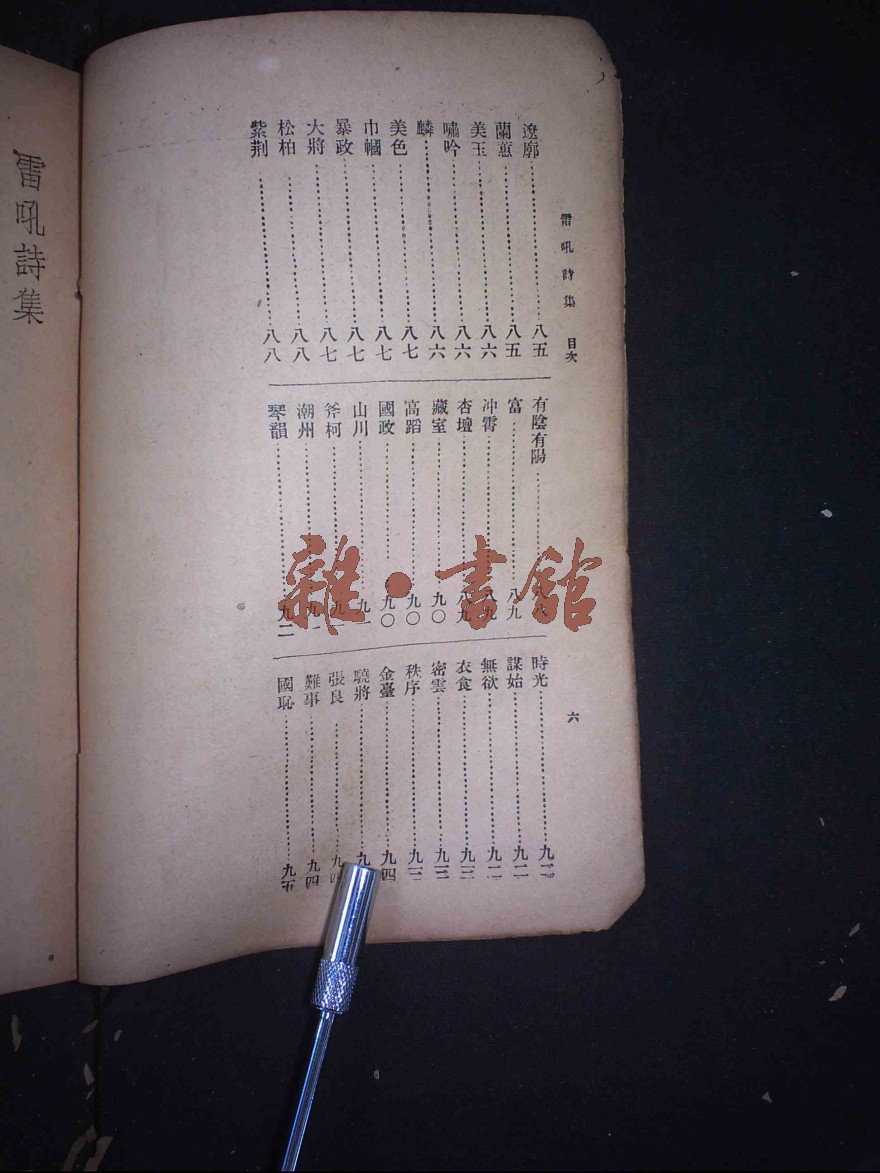 雷吼詩集 目次
六
遼廓……八五
蘭蕙……八五
美玉……八六
嘯吟……八六
麟……八六
美色……八七
巾幗……八七
暴政……八七
大將……八七
松柏……八八
紫荆……八八
有陰有陽……
富……八九
冲霄……八九
杏壇……八九
藏室……九〇
高蹈……九〇
國政……九〇
山川……九一
斧柯……九一
潮州……九一
琴韻……九二
時光……
謀始……
無欲……
衣食……九三
密雲……九三
秩序……九三
金臺……九四
驍將……
張良……
難事……九四
國恥……九五
雷吼詩集
雜·書館